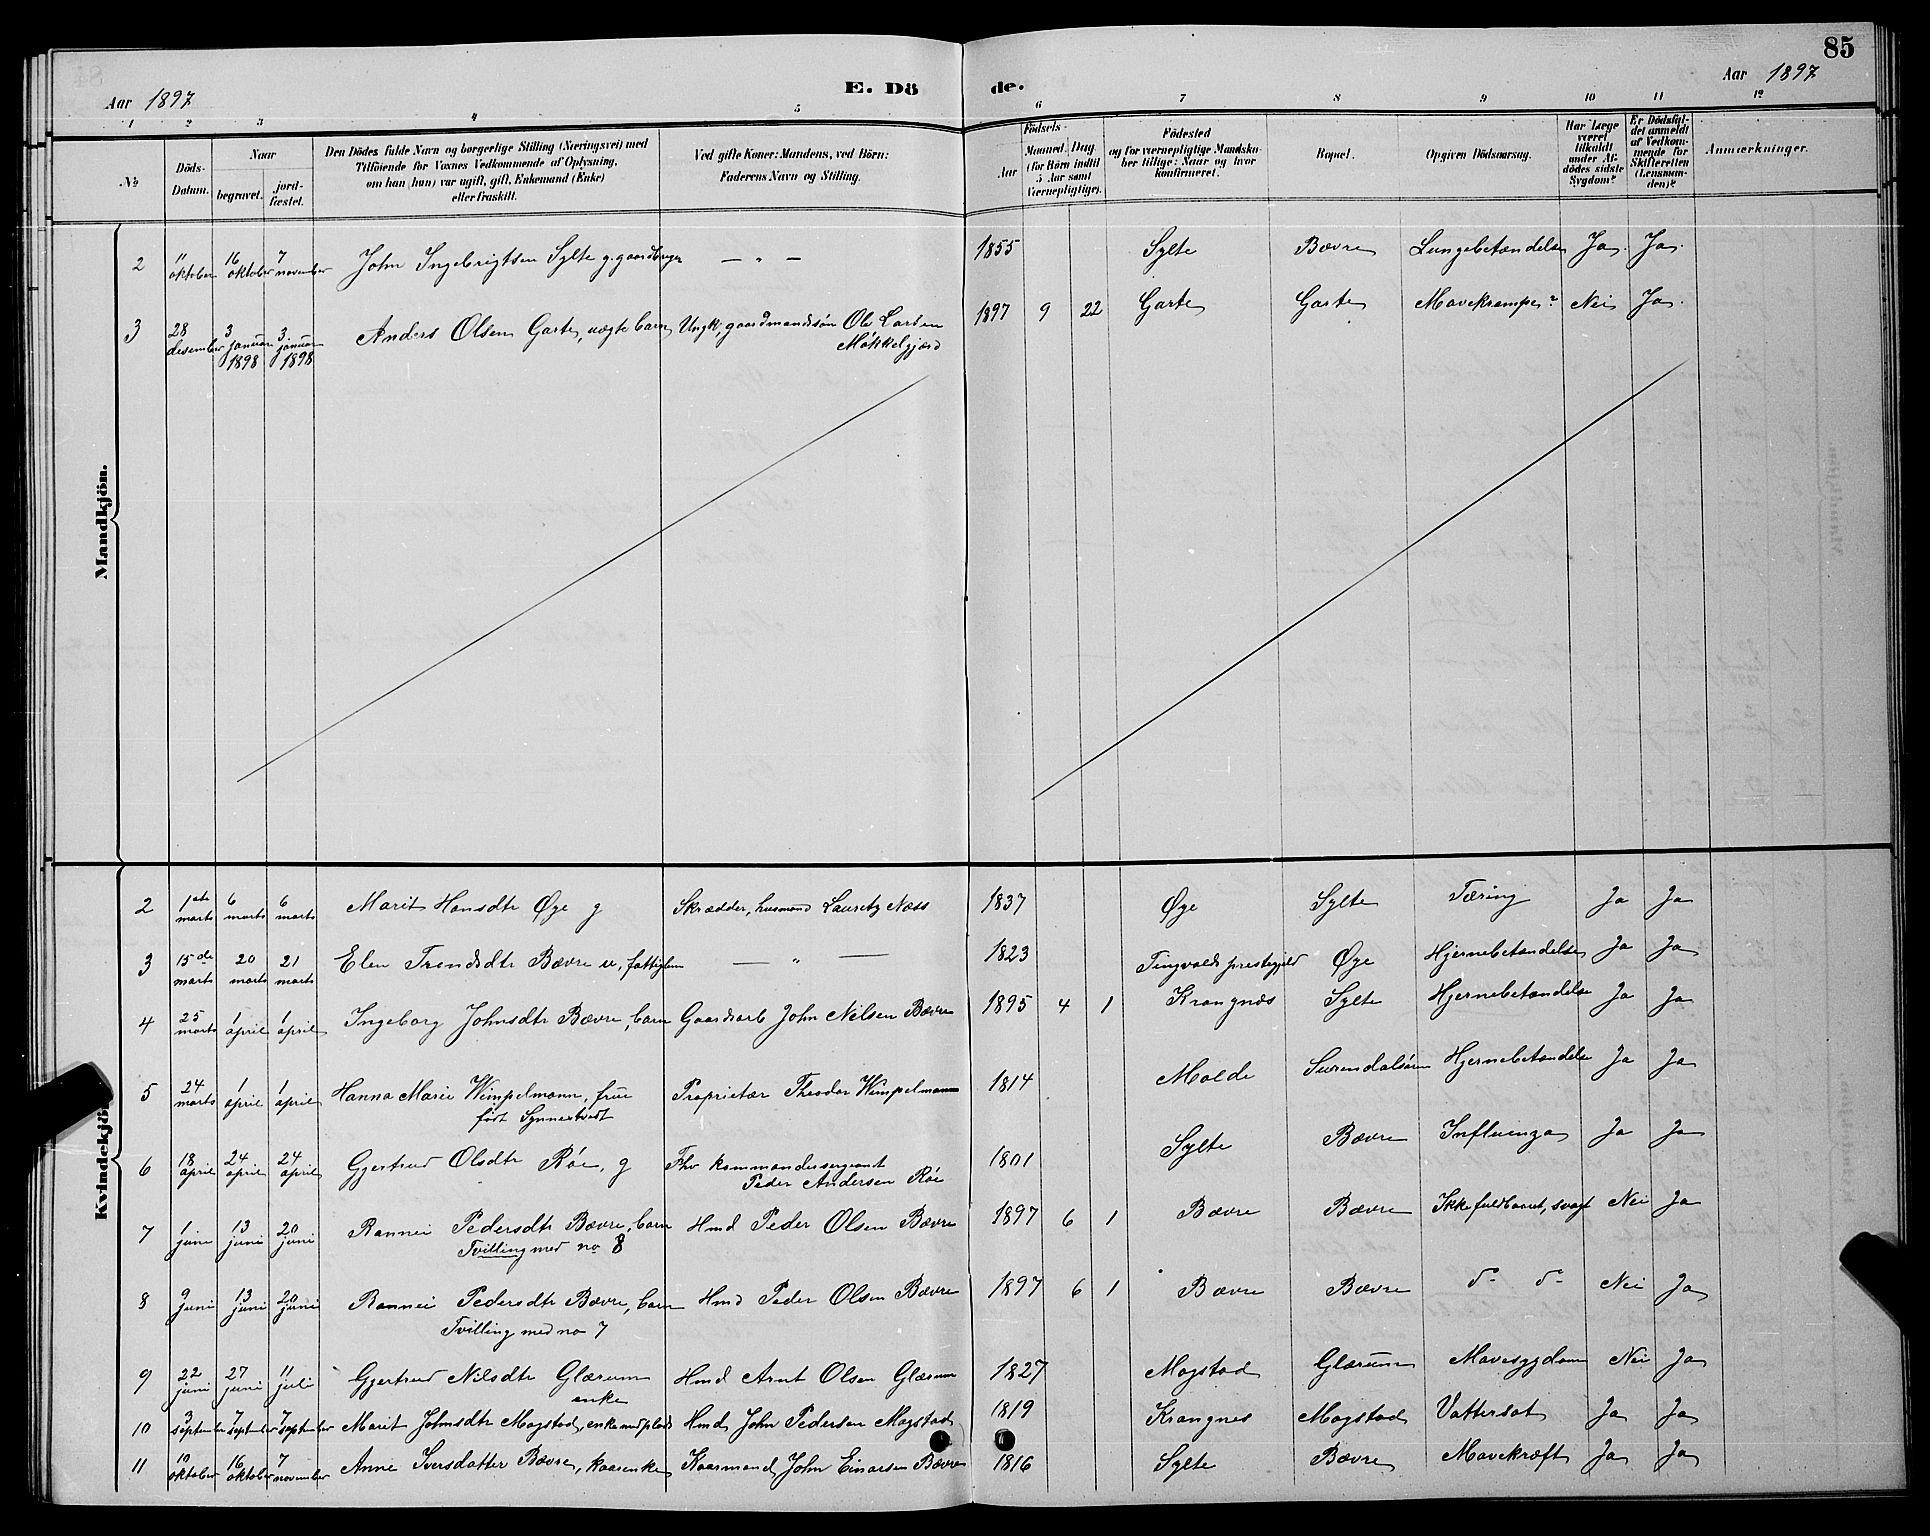 85
Aar 1897
E. Dö de.
Aar 1897
1 2 3 4 5 6 7 8 9 10 11 12
No
Döds-Datum.
Naar
begravet.
jordfæstet.
Den Dödes fulde Navn og borgerlige Stilling (Næringsvei) med
Tilföiende for Voxnes Vedkommende af Oplysning,
om han (hun) var ugift, gift, Enkemand (Enke)
eller fraskilt.
Ved gifte Koner: Mandens, ved Börn:
Faderens Navn og Stilling.
Födsels-
Aar
Maaned. Dag
(for Börn indtil
5 Aar samt
Værnepligtige).
Födested
og for værnepligtige Mandska-
ber tillige: Naar og hvor
konfirmeret.
Bopæl.
Opgiven Dödsaarsag.
Har Læge
været
tilkaldt
under Af-
dödes sidste
Sygdom?
Er Dödsfal-
det anmeldt
af Vedkom-
mende for
Skifteretten
(Lensman-
den)?
Anmærkninger.
Mandkjön.
2 11 oktober 16 oktober 7 november John Ingebrigtsen Sylte g. gaardbruger — " — 1855 Sylte Bævre Lungebetændelse Ja Ja
3 28 desember 3 januar 1898 3 januar 1898 Anders Olsen Garte, uægte barn Ungk, gaardmandssøn Ole Larsen 1897 9 22 Garte Garte Mavekrampe? Nei Ja
Møkkelgjærd
Kvindekjön.
2 1ste marts 6 marts 6 marts Marit Hansdtr Øye g Skrædder, husmand Lauritz Næss 1837 Øye Sylte Tæring Ja Ja
3 15de marts 20 marts 21 marts Elen Trondsdtr Bævre u, fattiglem — " — 1823 Tingvolds prestegjeld Øye Hjernebetændelse Ja Ja
4 25 marts 1 april 1 april Ingeborg Johnsdtr Bævre, barn Gaardarb John Nilsen Bævre 1895 4 1 Krangnæs Sylte Hjernebetændelse Ja Ja
5 24 marts 1 april 1 april Hanna Marie Wimpelmann, frue Proprietær Theodor Wimpelmann 1814 Molde Surendalsøren Hjernebetændelse Ja Ja
født Synnestvedt
6 18 april 24 april 24 april Gjertrud Olsdtr Røe, g Fhv kommandersergeant 1801 Sylte Bævre Influenza Ja Ja
Peder Andersen Røe
7 1 juni 13 juni 20 juni Rannei Pedersdtr Bævre, barn Hmd Peder Olsen Bævre 1897 6 1 Bævre Bævre Ikke fuldbaaret, svagt Nei Ja
Tvilling med no 8
8 9 juni 13 juni 20 juni Rannei Pedersdtr Bævre, barn Hmd Peder Olsen Bævre 1897 6 1 Bævre Bævre d- d- Nei Ja
Tvilling med no 7
9 22 juni 27 juni 11 juli Gjertrud Nilsdtr Glærum Hmd Arnt Olsen Glærum 1827 Mogstad Glærum Mavesygdom Nei Ja
enke
10 3 september 7 september 7 september Marit Johnsdtr Mogstad, enke med plads Hmd John Pedersen Mogstad 1819 Krangnes Mogstad Vattersot Ja Ja
11 10 oktober 16 oktober 7 november Anne Iversdatter Bævre, kaarenke Kaarmand John Einarsen Bævre 1816 Sylte Bævre Mavekræft Ja Ja